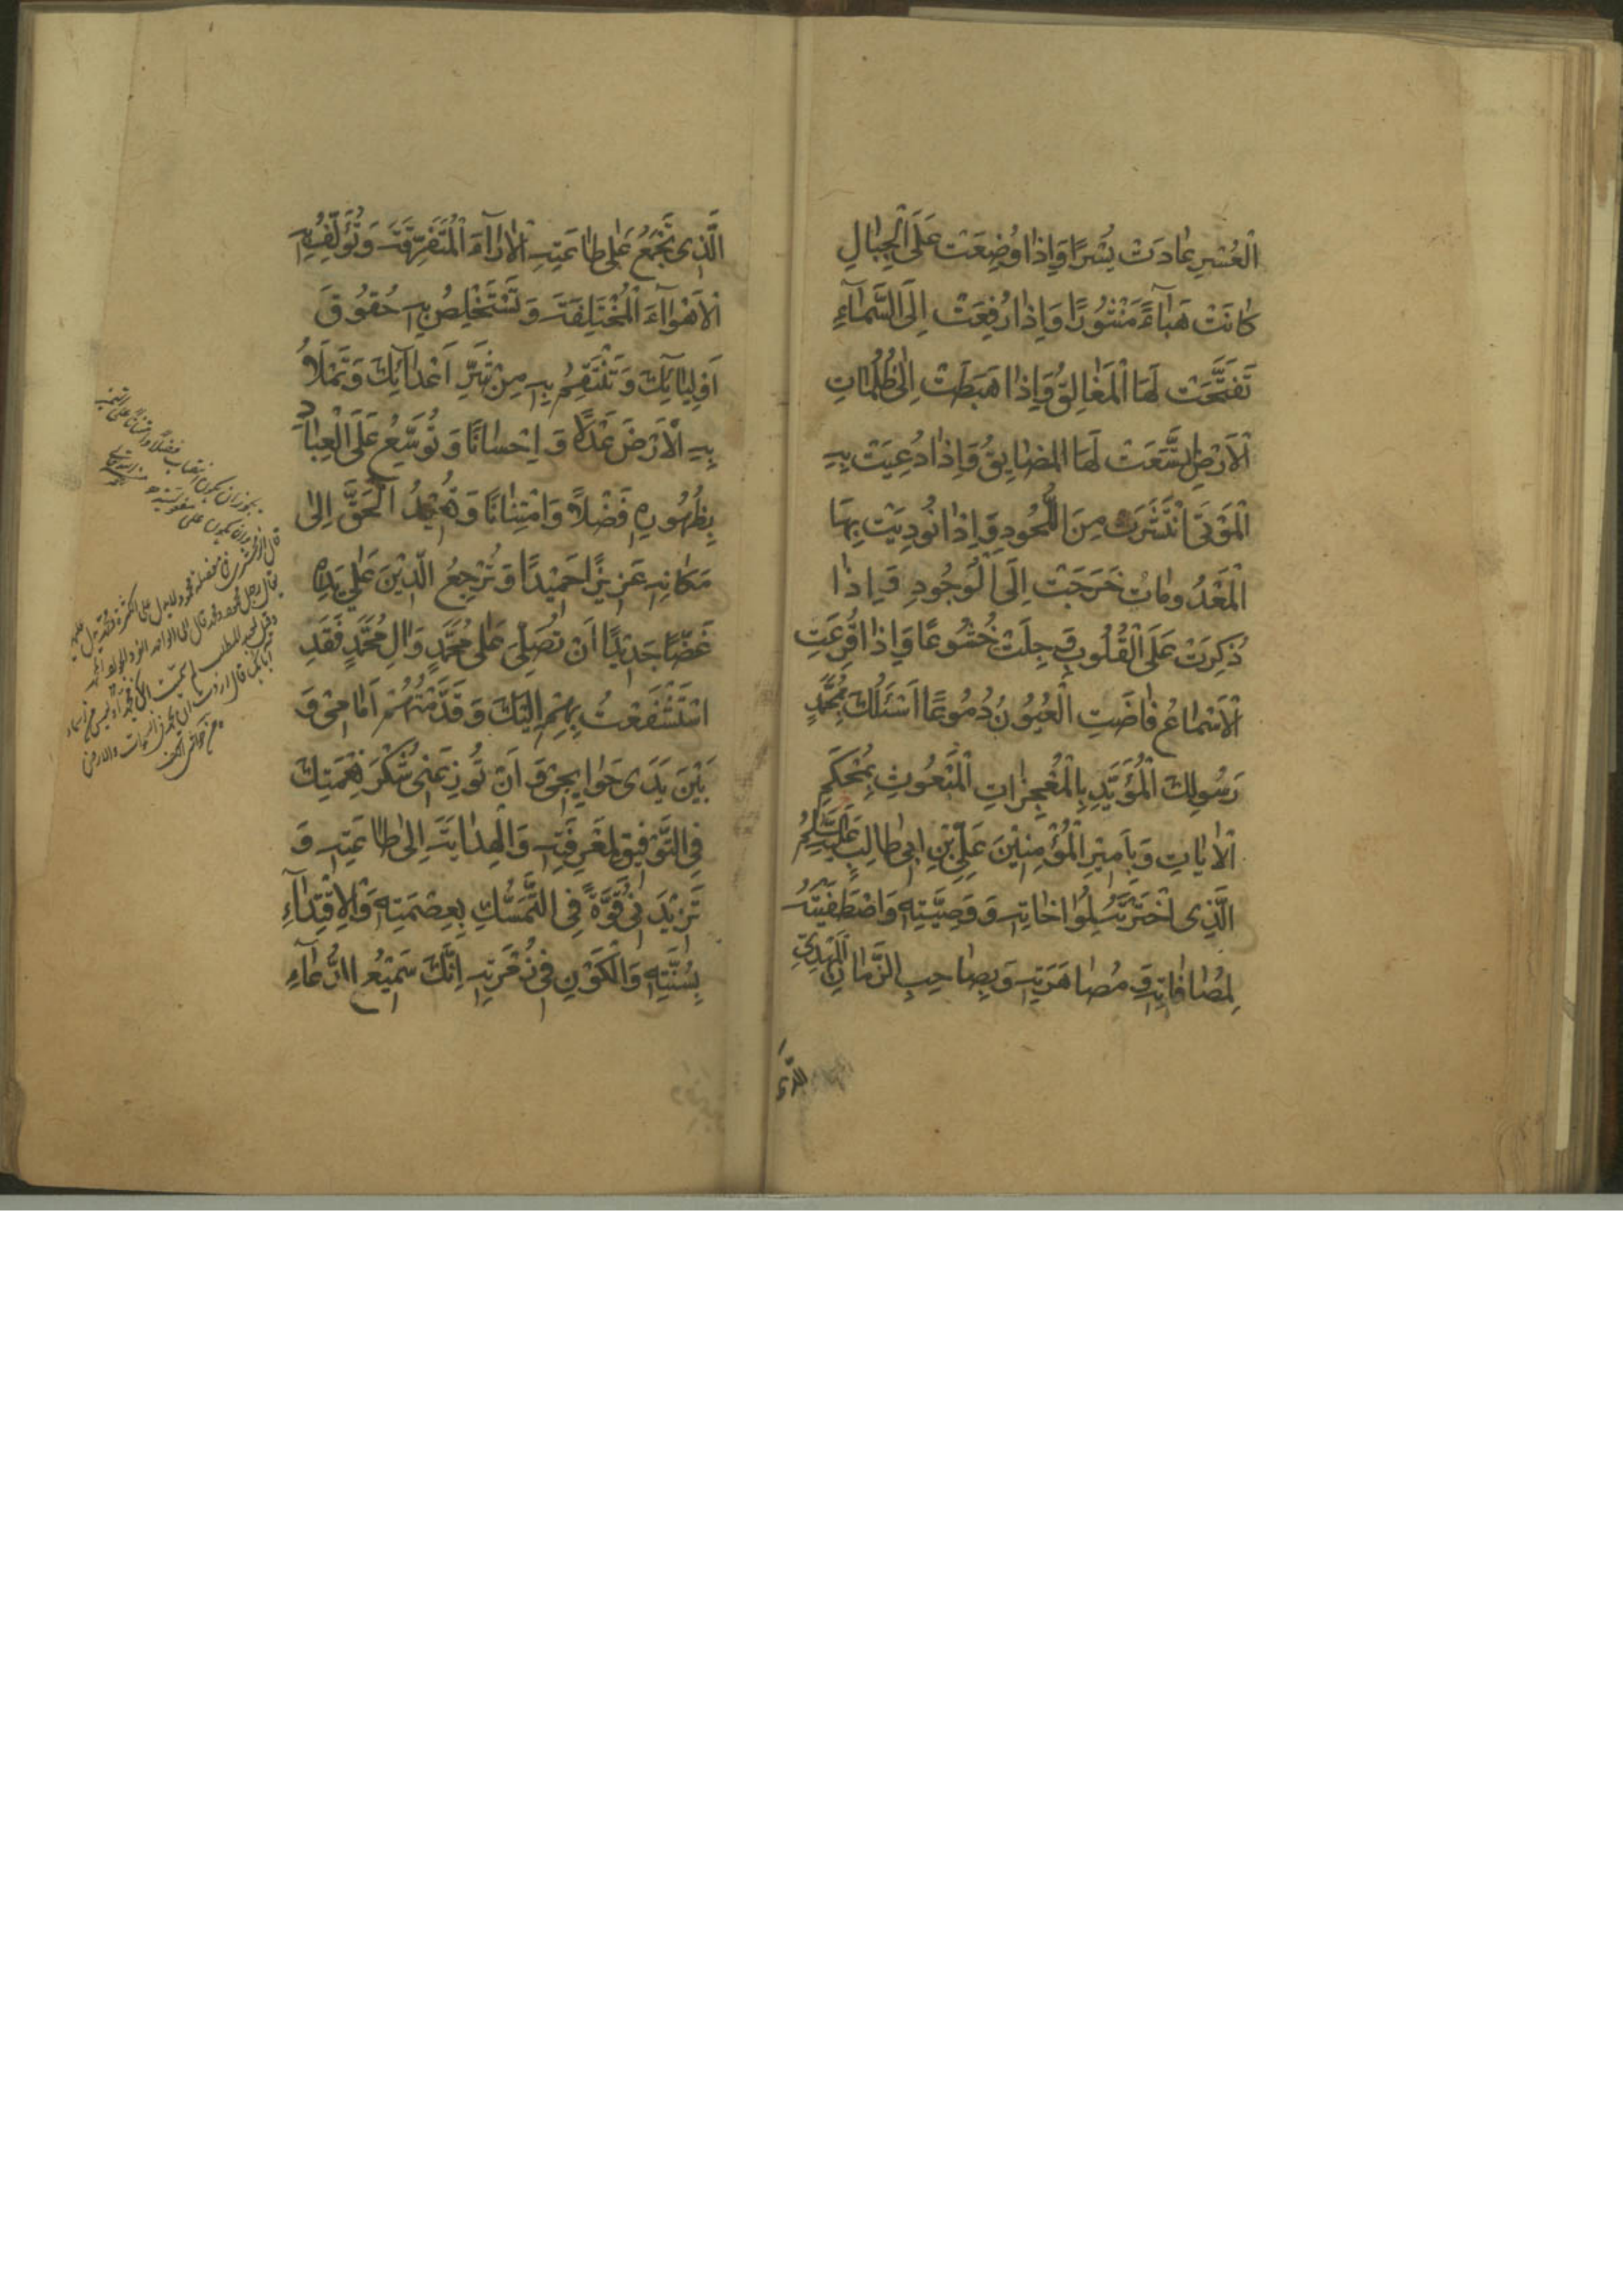 الْعُسْرِ عٰادَتْ يُسْرًا وَاِذٰا وُضِعَتْ عَلَى الْجِبٰالِ
كٰانَتْ هَبٰآءً مَنْثُورًا وَاِذٰا رُفِعَتْ اِلَى السَّمٰآءِ
تَفَتَّحَتْ لَهَا الْمَغٰالِقُ وَاِذٰا هَبَطَتْ اِلٰى ظُلُمٰاتِ
الْاَرْضِ اتَّسَعَتْ لَهَا الْمَضٰايِقُ وَاِذٰا دُعِيَتْ بِهِ
الْمَوْتٰى انْتَشَرَتْ مِنَ اللُّحُودِ وَاِذٰا نُودِيَتْ بِهَا
الْمَعْدُومٰاتُ خَرَجَتْ اِلَى الْوُجُودِ وَاِذٰا
ذُكِرَتْ عَلَى الْقُلُوبِ وَجِلَتْ خُشُوعًا وَاِذٰا قُرِعَتِ
الْاَسْمٰاعُ فٰاضَتِ الْعُيُونُ دُمُوعًا اَسْئَلُكَ بِمُحَمَّدٍ
رَسُولِكَ الْمُؤَيَّدِ بِالْمُعْجِزٰاتِ الْمَبْعُوثِ بِمُحْكَمِ
الْاٰيٰاتِ وَبِاَمِيْرِ الْمُؤْمِنِيْنَ عَلِيِّ بْنِ اَبِى طٰالِبٍ عَلَيْهِ السَّلَامُ
الَّذِى اخْتَرْتَهُ لِمُوٰاخٰاتِهِ وَوَصِيَّتِهِ وَاصْطَفَيْتَهُ
لِمُصٰافٰاتِهِ وَمُصٰاهَرَتِهِ وَبِصٰاحِبِ الزَّمٰانِ الْمَهْدِىِّ
الَّذى
الَّذِى تَجْمَعُ عَلٰى طٰاعَتِهِ الْاٰرٰآءَ الْمُتَفَرِّقَةَ وَتُؤَلِّفُ بِهِ
الْاَهْوٰآءَ الْمُخْتَلِفَةَ وَتَسْتَخْلِصُ بِهِ حُقُوقَ
اَوْلِيٰآئِكَ وَتَنْتَقِمُ بِهِ مِنْ شَرِّ اَعْدٰآئِكَ وَتَمْلَاُ
بِهِ الْاَرْضَ عَدْلًا وَاِحْسٰانًا وَتُوَسِّعُ عَلَى الْعِبٰادِ
بِظُهُورِهِ فَضْلًا وَامْتِنٰانًا وَتُعِيْدُ الْحَقَّ اِلٰى
مَكٰانِهِ عَزِيْزًا حَمِيْدًا وَتُرْجِعُ الدِّيْنَ عَلٰى يَدَيْهِ
غَضًّا جَدِيْدًا اَنْ تُصَلِّىَ عَلٰى مُحَمَّدٍ وَاٰلِ مُحَمَّدٍ فَقَدِ
اسْتَشْفَعْتُ بِهِمْ اِلَيْكَ وَقَدَّمْتُهُمْ اَمٰامِىْ وَ
بَيْنَ يَدَىْ حَوٰائِجِىْ وَاَنْ تُوزِعَنِىْ شُكْرَ نِعْمَتِكَ
فِى التَّوْفِيقِ لِمَعْرِفَتِهِ وَالْهِدٰايَةِ اِلٰى طٰاعَتِهِ وَ
تَزِيْدَنِىْ قُوَّةً فِى التَّمَسُّكِ بِعِصْمَتِهِ وَالْاِقْتِدٰآءِ
بِسُنَّتِهِ وَالْكَوْنِ فِىْ زُمْرَتِهِ اِنَّكَ سَمِيْعُ الدُّعٰآءِ